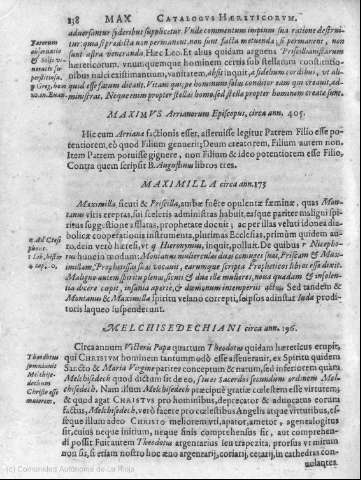 218 MAX CATALOGVS HÆRETICORVM.
aduersantur syderibus supplicatur. Vnde commentum impium sua ratione destrui-
tur: quia si prædicta non permanent, non sunt fata metuenda; si permanent, non
sunt astra veneranda. Hæc Leo. Et alius quidam argnens Priscillianistarum
hæreticorum, vnumquemque hominem certis sub stellarum constitutioni-
tionibus nasci existimantium, vanitatem, absit inquit, a fidelium cordibus, vt ali-
quid esse fatum dicant. Vitam quippe hominum solus conditor eam qui creauit, ad-
ministrat. Neque enim propter stellas homo, sed stellæ propter hominem creatæ sunt.
Paternorum
obseruantia
& Solis ve-
neratio su-
perstitiosa.
D. Greg. hom.
10. in Euan.
MAXIMVS Arrianorum Episcopus, circa ann. 405.
Hic cum Arrianæ factionis esset, asseruisse legitur Patrem Filio esse po-
tentiorem, eò quod Filium genuerit; Deum creatorem, Filium autem non.
Item Patrem potuisse gignere, non Filium & ideo potentiorem esse Filio,
Contra quem scripsit B. Augustinus libros tres.
MAXIMILLA circa ann. 173
Maximilla sicuti & Priscilla, ambæ fœtæ opulentæ fœminæ, quas Mon-
tanus vitiis ereptas, sui sceleris administras habuit, easque pariter maligni spi-
ritus suggestione afflatas, prophetare docuit; ac per illas veluti idonea dia-
bolicæ cooperationis instrumenta, plurimas Ecclesias, primùm quidem au-
ro, dein verò hæresi, vt Hieronymus, inquit, polluit. De quibus Nicepho-
rus hunc in modum: Montanus mulierculas duas coniuges suas, Priscam & Maxi-
millam, Prophetissas suas vocauit, earumque scripta Propheticos libros esse dixit.
Maligno autem spiritu pleni, sicuti & duæ illæ mulieres, noua quædam & insolen-
tia dicere cœpit, insania aperte, & dæmonum intemperiis actus. Sed tandem &
Montanus & Maximilla spiritu velano correpti, seipsos adinstar Iudæ prodi-
toris laqueo suspenderunt.
Ad Ctesi
phonte.
Lib. histor.
4. cap. 20.
MELCHISEDECHIANI circa ann. 196.
Circa annum Victoris Papæ quartum Theodotus quidam hæreticus erupit,
qui CHRISTVM hominem tantummodò esse asseuerauit, ex Spiritu quidem
Sancto & Maria Virgine pariter conceptum & natum, sed inferiorem quam
Melchisedech quod dictum sit de eo, tu es Sacerdos secundum ordinem Mel-
chisedech. Nam istum Melchisedech præcipuè gratiæ cœlestem esse virtutem;
& quod agat CHRISTVS pro hominibus, deprecator & aduocatus eorum
factus, Melchisedech, verò facere pro cœlestibus Angelis atque virtutibus, es-
seque illum adeo CHRISTO meliorem vt, apator, ametor, agenealogitus
sit, cuius neque initium, neque finis comprehensus sit, aut comprehen-
di possit. Fuit autem Theodotus argentarius seu trapezita, prorsus vt mirum
non sit, si etiam nostro hoc æuo argentarij, coriarij, cetarij, in cathedras con-
uolantes
Theodotus
somniantis
Melchise-
dechum
Christo esse
maiorem.
(c) Comunidad Autónoma de La Rioja